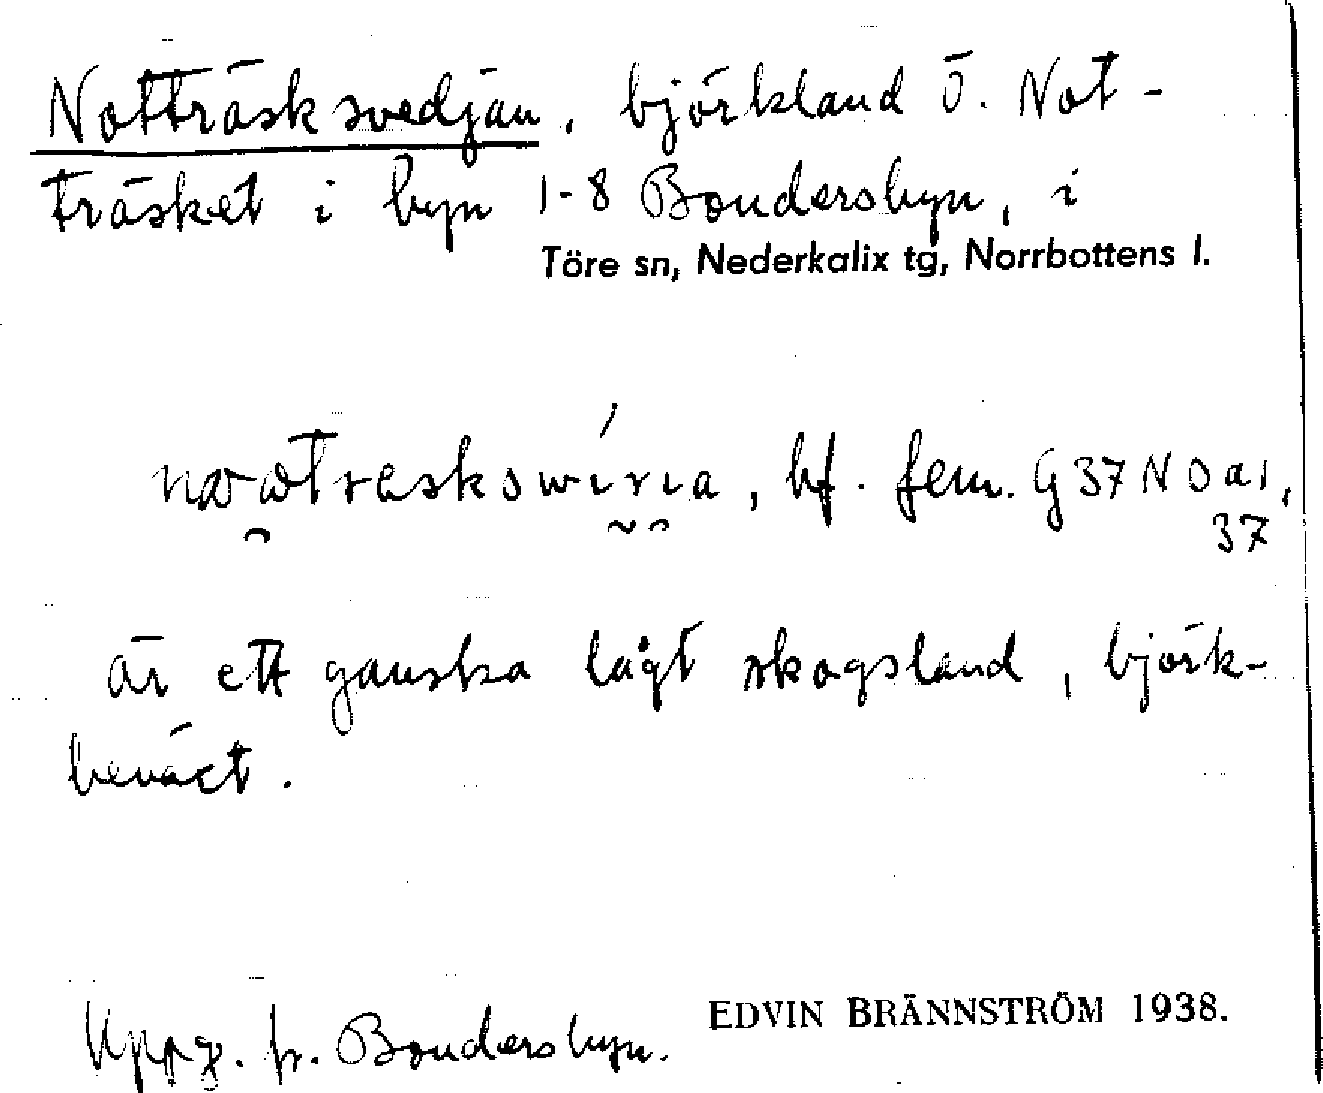 Notträsksvedjan, björkland Ö. Not-
träsket i byn 1-8 Bondersbyn, i
Töre sn, Nederkalix tg, Norrbottens l.
bf. fem. G 37 N
37
är ett ganska lågt skogsland, björk-
beväxt.
Uppg. fr. Bondersbyn.
EDVIN BRÄNNSTRÖM 1938.